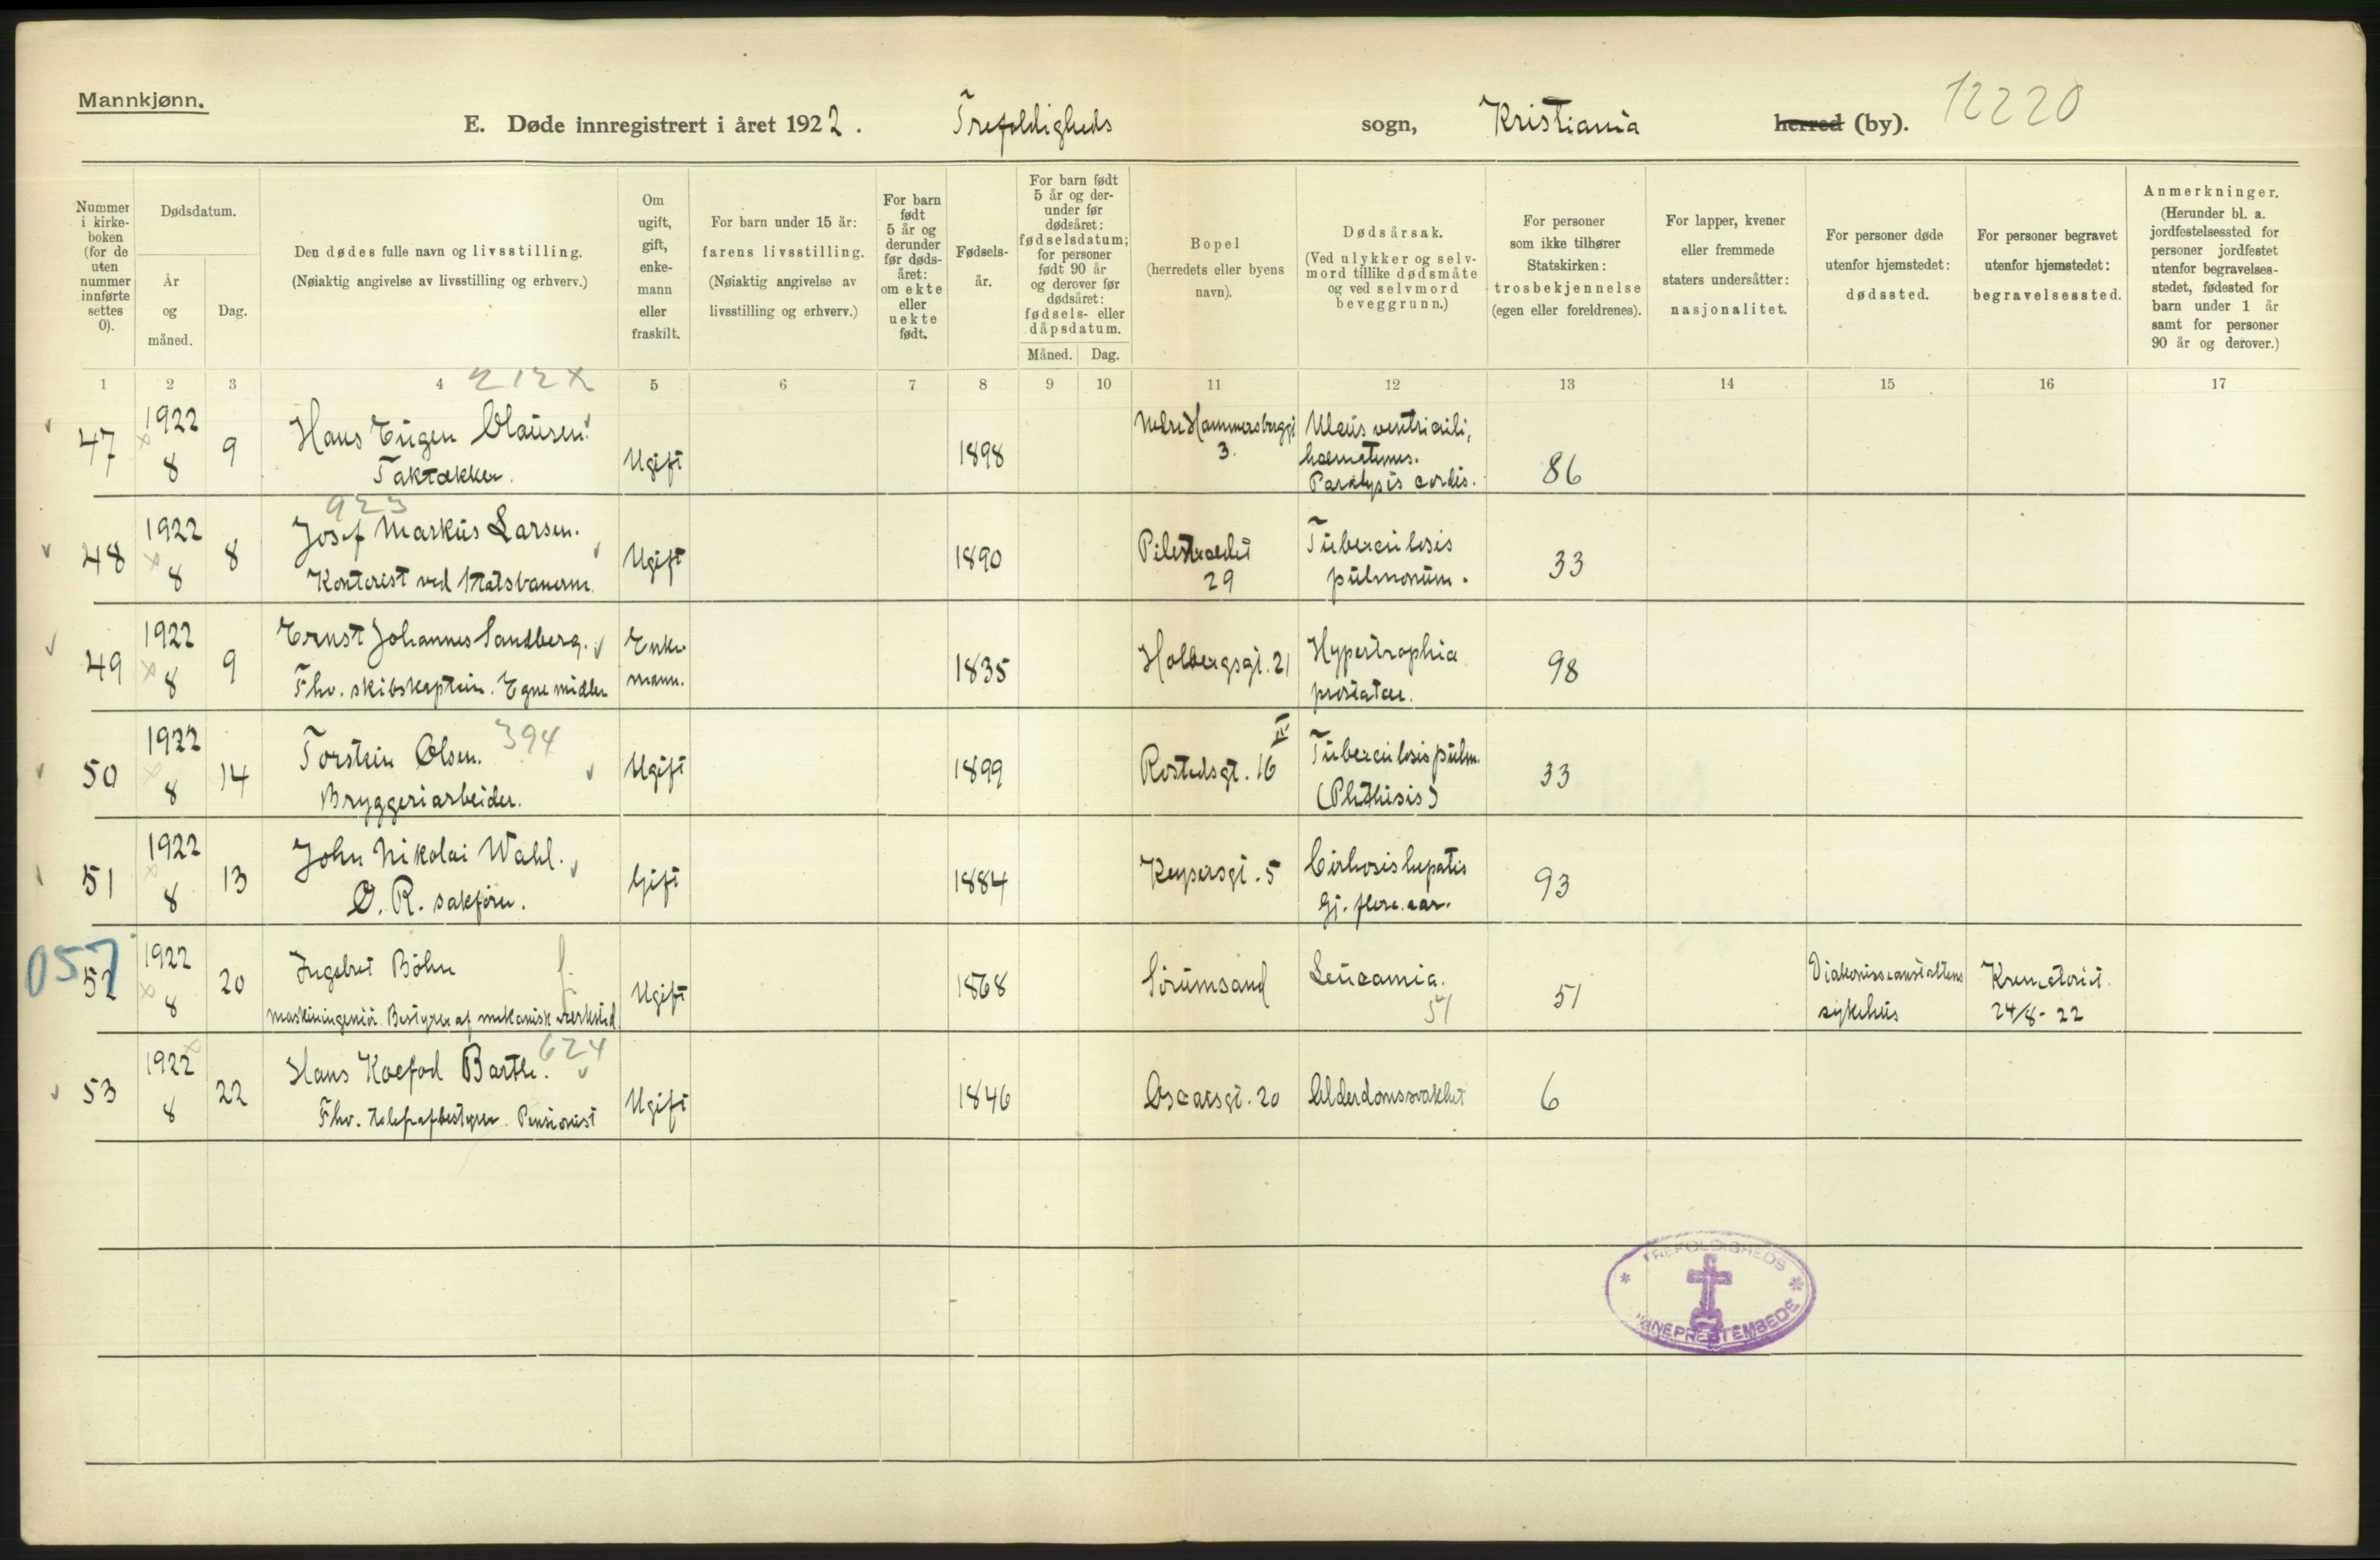 Mannkjønn.
E. Døde innregistrert i året 1922. Trefoldigheds sogn, Kristiania herred (by). 12220
Nummer i kirke-boken (for de uten nummer innførte settes 0).
Dødsdatum.
År og måned.
Dag.
Den dødes fulle navn og livsstilling.
(Nøiaktig angivelse av livsstilling og erhverv.)
Om ugift, gift, enke-mann eller fraskilt.
For barn under 15 år:
farens livsstilling.
(Nøiaktig angivelse av livsstilling og erhverv.)
For barn født 5 år og derunder før døds-året: om ekte eller uekte født.
Fødsels-år.
For barn født 5 år og der-under før dødsåret: fødselsdatum; for personer født 90 år og derover før dødsåret: fødsels- eller dåpsdatum.
Måned. Dag.
Bopel
(herredets eller byens navn).
Dødsårsak.
(Ved ulykker og selv-mord tillike dødsmåte og ved selvmord beveggrunn.)
For personer som ikke tilhører Statskirken: trosbekjennelse (egen eller foreldrenes).
For lapper, kvener eller fremmede staters undersåtter: nasjonalitet.
For personer døde utenfor hjemstedet: dødssted.
For personer begravet utenfor hjemstedet: begravelsessted.
Anmerkninger.
(Herunder bl. a. jordfestelsessted for personer jordfestet utenfor begravelses-stedet, fødested for barn under 1 år samt for personer 90 år og derover.)
1 2 3 4 5 6 7 8 9 10 11 12 13 14 15 16 17
212 x
47 1922 8 9 Hans Eugen Clausen. Ugift 1898 Nedre Hammersborggt 3. Ulcus ventriculi, 86
Taktækker. haematemes.
Paralysis cordis.
923
48 1922 8 8 Josef Markus Larsen. Ugift 1890 Pilestrædet 29 Tuberculosis 33
Kontorist ved Statsbanerne. pulmonum.
49 1922 8 9 Ernst Johannes Sandberg. Enke-mann. 1835 Holbergsgt. 21 Hypertrophia 98
Fhv. skibskaptein. Egne midler prostatae.
50 1922 8 14 Torstein Olsen. 394 Ugift 1899 Rostedsgt. 16 III Tuberculosis pulm. 33
Bryggeriarbeider. (Phthisis)
51 1922 8 13 John Nikolai Wahl. Gift 1884 Keysersgt. 5 Cirhosis hepatis 93
O. R. sakfører. Gj. flere aar.
057
52 1922 8 20 Ingebret Böhn Ugift 1868 Sörumsand Leucamia. 51 51 Diakonisseanstaltens sykehus Krematoriet. 24/8-22
Maskiningeniör. Bestyrer af mekanisk verksted
53 1922 8 22 Hans Koefod Barth. 624 Ugift 1846 Oscarsgt. 20 Alderdomssvakhet 6
Fhv. telegrafbestyrer. Pensionist
TREFOLDIGHEDS
SOGNEPRESTEMBEDE